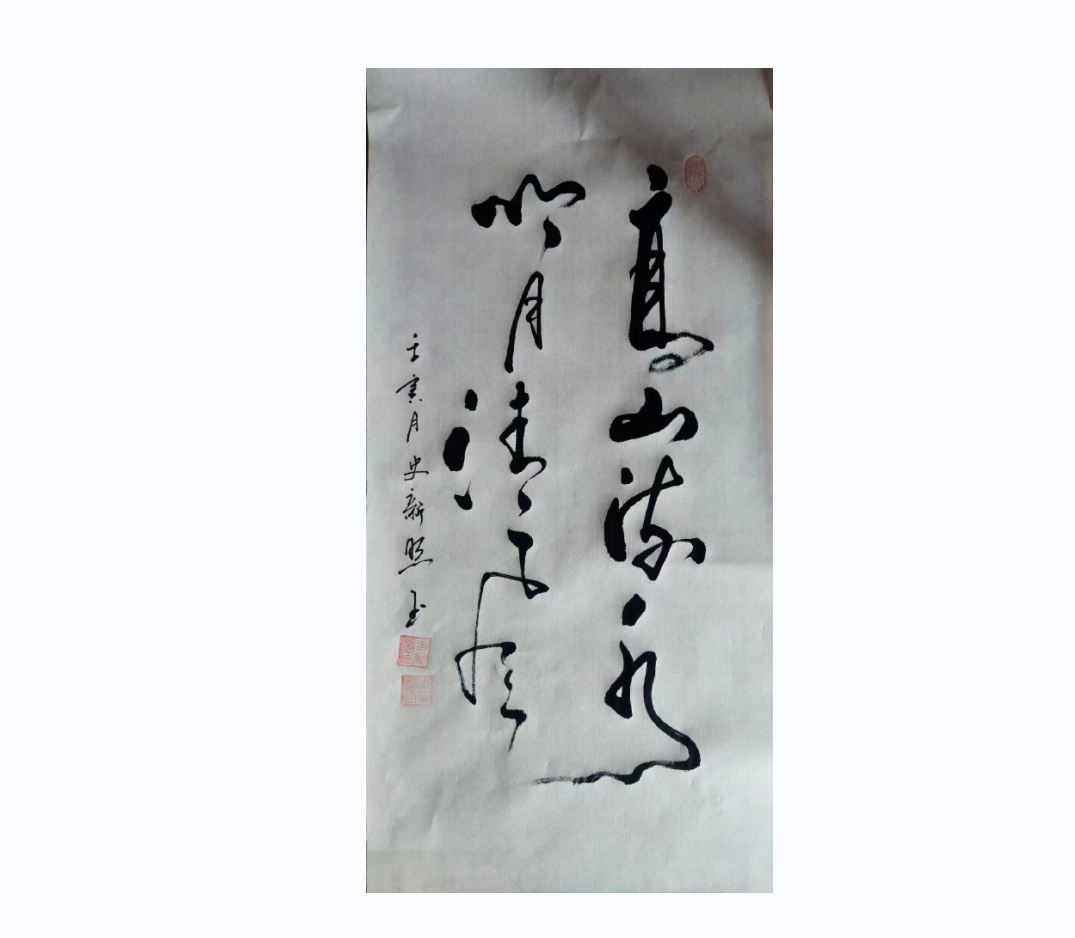 高山流水
明月清風
壬寅月史新照书